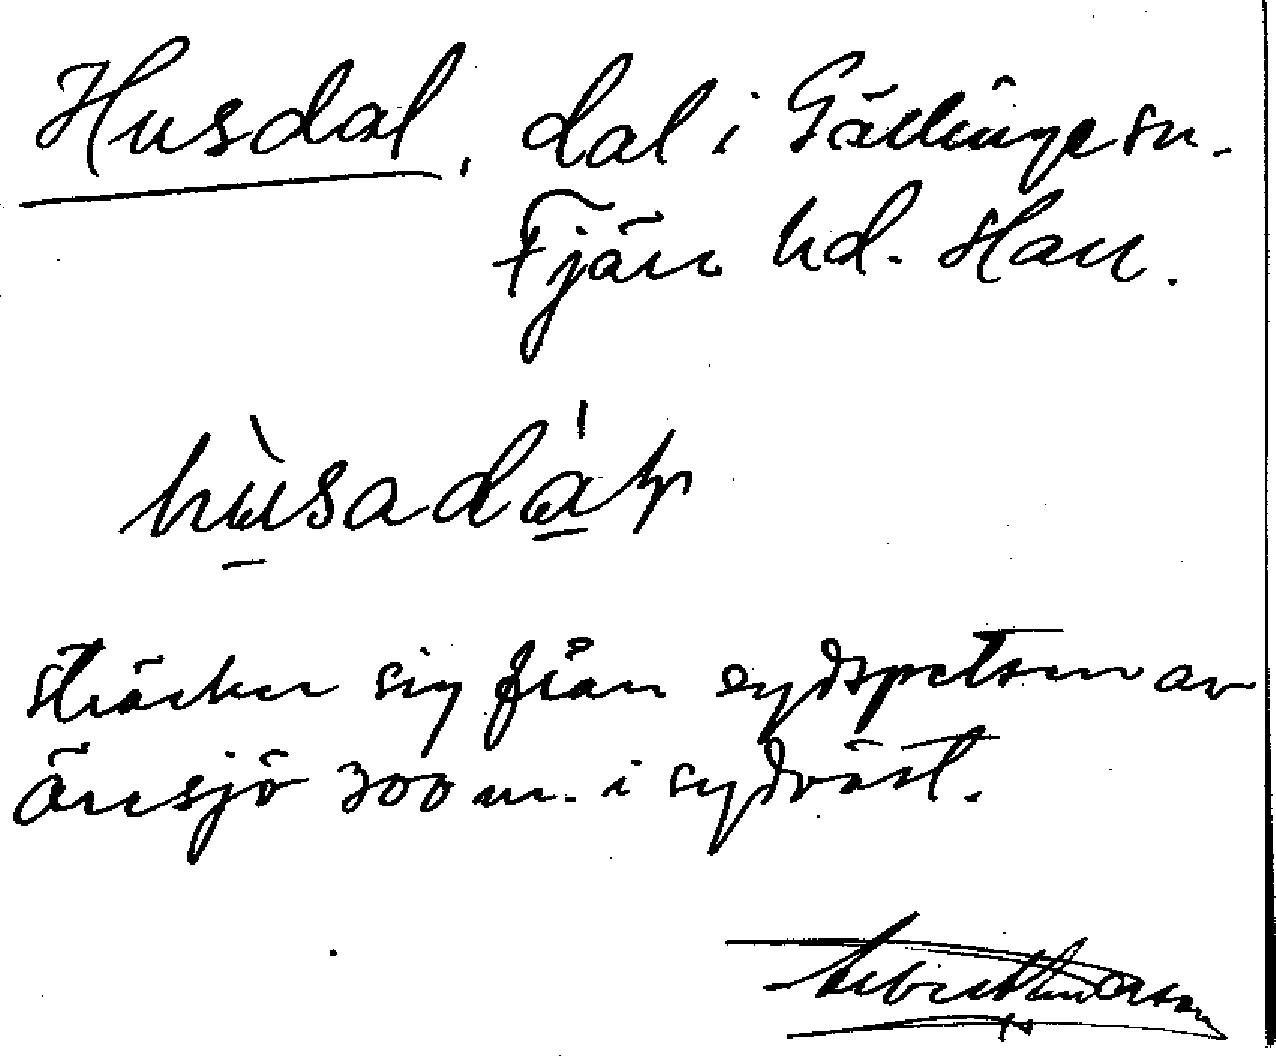 Husdal, dal i Gällinge sn.
Fjäre hd. Hall.
hùsadá
sträcker sig från sydspetsen av
Öresjö 300 m. i sydväst.